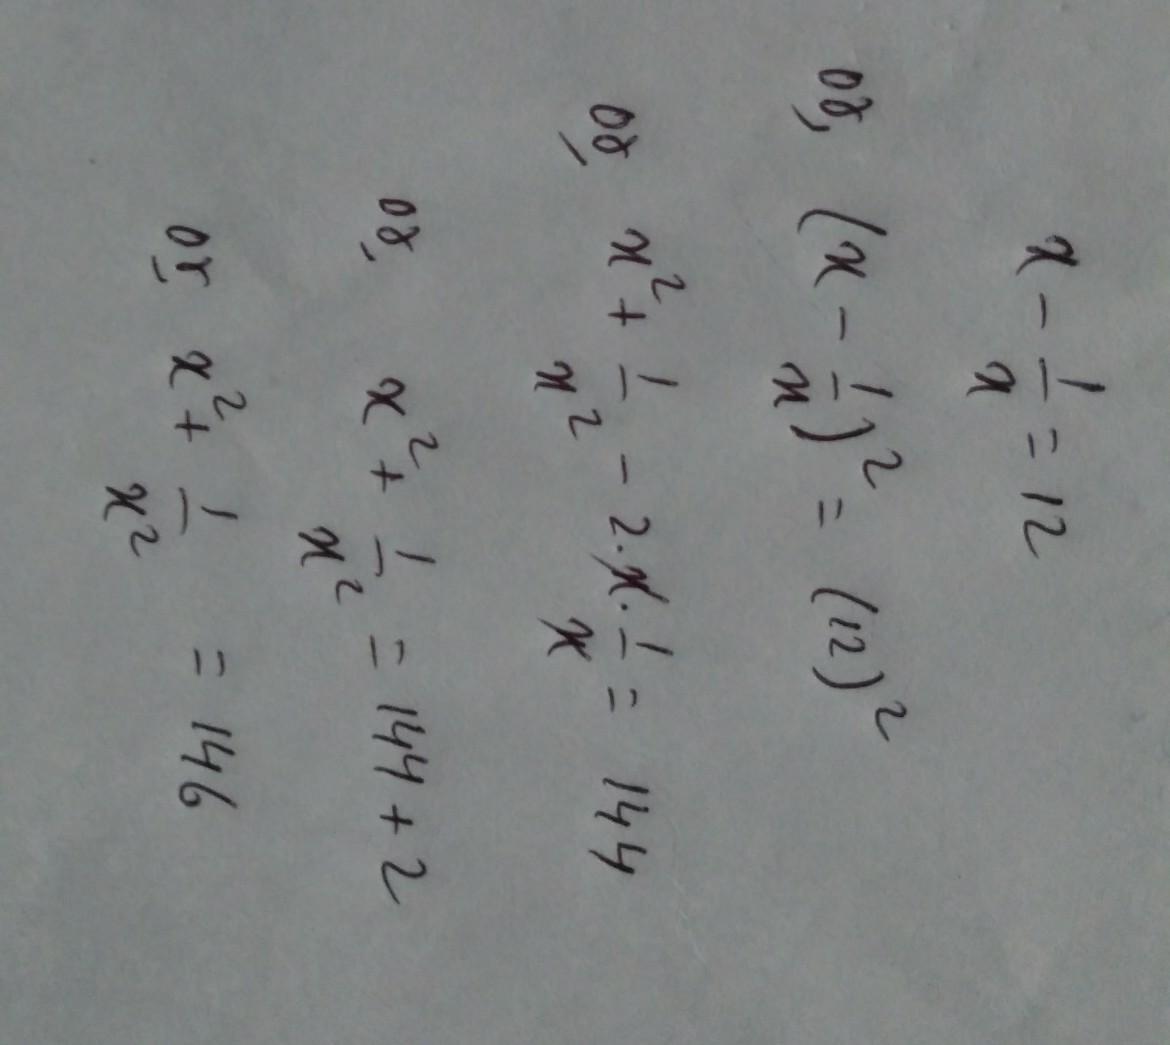 x - 1/x = 12
or, (x - 1/x)² = (12)²
or, x² + 1/x² - 2.x.1/x = 144
or, x² + 1/x² = 144 + 2
or, x² + 1/x² = 146